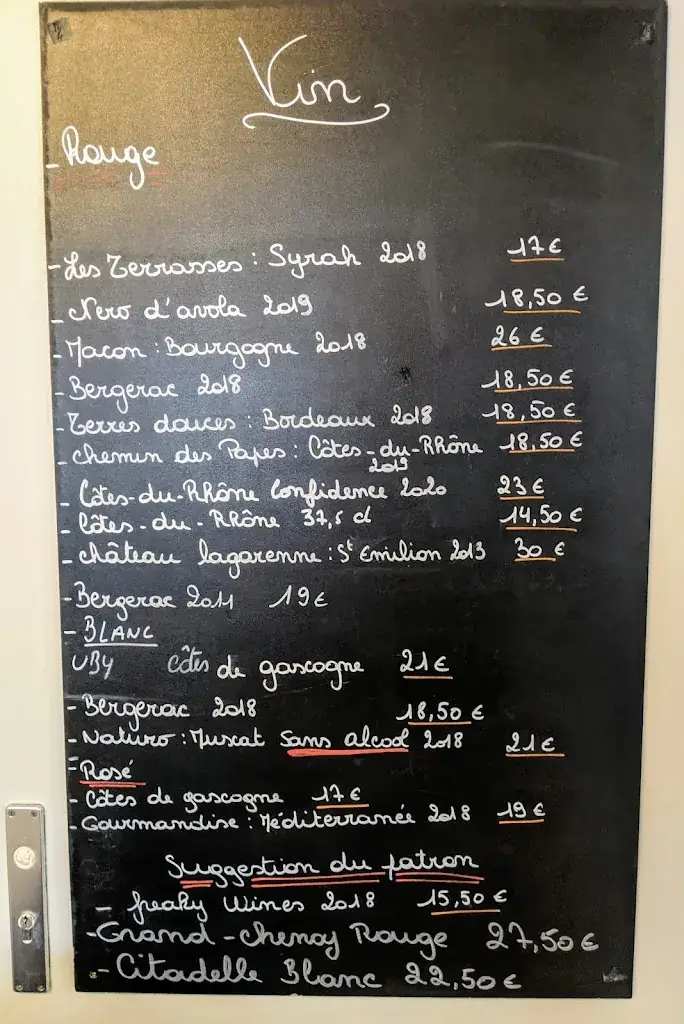 Vin
- Rouge
- Les Terrasses : Syrah 2018 17 €
- Nero d'avola 2019 18,50 €
- Macon : Bourgogne 2018 26 €
- Bergerac 2018 18,50 €
- Terres douces : Bordeaux 2018 18,50 €
- Chemin des Papes : Côtes-du-Rhône 18,50 €
2019
- Côtes-du-Rhône Confidence 2020 23 €
- Côtes-du-Rhône 37,5 cl 14,50 €
- château lagarenne : St Emilion 2013 30 €
- Bergerac 2011 19 €
- BLANC
UBY côtes de gascogne 21 €
- Bergerac 2018 18,50 €
- Naturo : Muscat sans alcool 2018 21 €
- Rosé
- Côtes de gascogne 17 €
- Gourmandise : Méditerranée 2018 19 €
Suggestion du patron
- freaky Wines 2018 15,50 €
- Grand-Chenoy Rouge 27,50 €
- Citadelle Blanc 22,50 €